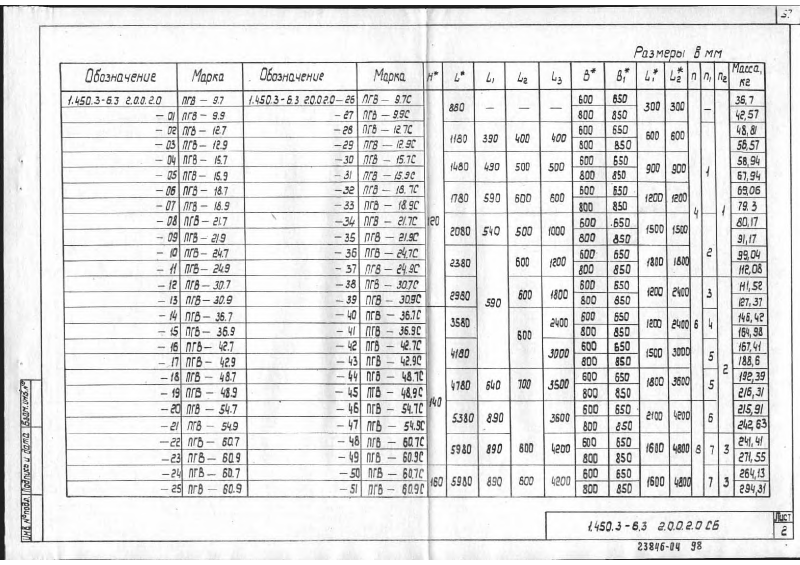 57
Размеры в мм
Обозначение Марка Обозначение Марка H* L* L₁ L₂ L₃ B* B₁* L₁* L₂* n n₁ n₂ Масса, кг
1.450.3-6.3 2.0.0.2.0 ПГВ – 9.7 1.450.3-6.3 2.0.0.2.0-26 ПГВ – 9.7С 120 880 — — — 600 650 300 300 4 — 1 36,7
-01 ПГВ – 9.9 -27 ПГВ – 9.9С 800 850 42,57
-02 ПГВ – 12.7 -28 ПГВ – 12.7С 1180 390 400 400 600 650 600 600 1 48,81
-03 ПГВ – 12.9 -29 ПГВ – 12.9С 800 850 56,57
-04 ПГВ – 15.7 -30 ПГВ – 15.7С 1480 490 500 500 600 650 900 900 58,94
-05 ПГВ – 15.9 -31 ПГВ – 15.9С 800 850 67,94
-06 ПГВ – 18.7 -32 ПГВ – 18.7С 1780 590 600 600 600 650 1200 1200 69,06
-07 ПГВ – 18.9 -33 ПГВ – 18.9С 800 850 79.3
-08 ПГВ – 21.7 -34 ПГВ – 21.7С 2080 540 500 1000 600 650 1500 1500 2 80,17
-09 ПГВ – 21.9 -35 ПГВ – 21.9С 800 850 91,17
-10 ПГВ – 24.7 -36 ПГВ – 24.7С 2380 590 600 1200 600 650 1800 1800 99,04
-11 ПГВ – 24.9 -37 ПГВ – 24.9С 800 850 112,08
-12 ПГВ – 30.7 -38 ПГВ – 30.7С 2980 600 1800 600 650 1200 2400 6 3 2 111,52
-13 ПГВ – 30.9 -39 ПГВ – 30.9С 800 850 127,37
-14 ПГВ – 36.7 -40 ПГВ – 36.7С 140 3580 600 2400 600 650 1200 2400 4 146,42
-15 ПГВ – 36.9 -41 ПГВ – 36.9С 800 850 164,98
-16 ПГВ – 42.7 -42 ПГВ – 42.7С 4180 3000 600 650 1500 3000 5 167,41
-17 ПГВ – 42.9 -43 ПГВ – 42.9С 800 850 188,6
-18 ПГВ – 48.7 -44 ПГВ – 48.7С 4780 640 700 3500 600 650 1800 3600 5 192,39
-19 ПГВ – 48.9 -45 ПГВ – 48.9С 800 850 216,31
-20 ПГВ – 54.7 -46 ПГВ – 54.7С 5380 890 600 3600 600 650 2100 4200 6 215,91
-21 ПГВ – 54.9 -47 ПГВ – 54.9С 800 850 242,63
-22 ПГВ – 60.7 -48 ПГВ – 60.7С 5980 890 4200 600 650 1600 4800 8 7 3 241,41
-23 ПГВ – 60.9 -49 ПГВ – 60.9С 800 850 271,55
-24 ПГВ – 60.7 -50 ПГВ – 60.7С 160 5980 890 600 4200 600 650 1600 4800 7 3 264,13
-25 ПГВ – 60.9 -51 ПГВ – 60.9С 800 850 294,31
Инв. № подл. Подпись и дата Взам. инв. №
1.450.3-6.3 2.0.0.2.0 СБ
Лист
2
23846-04 98